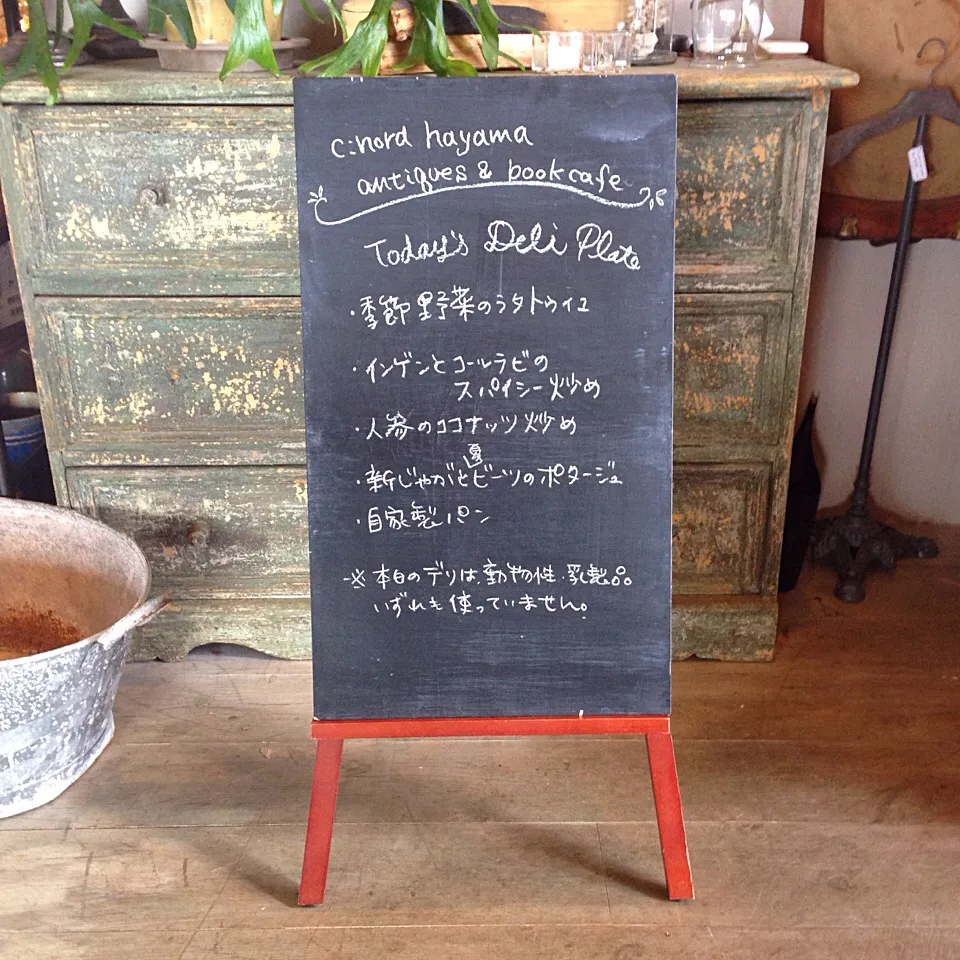 c:nord hayama
antiques & bookcafe
Today's Deli Plate
・季節野菜のラタトゥイユ
・インゲンとコールラビの
スパイシー炒め
・人参のココナッツ炒め
夏
・新じゃがとビーツのポタージュ
・自家製パン
※本日のデリは、動物性・乳製品
いずれも使っていません。